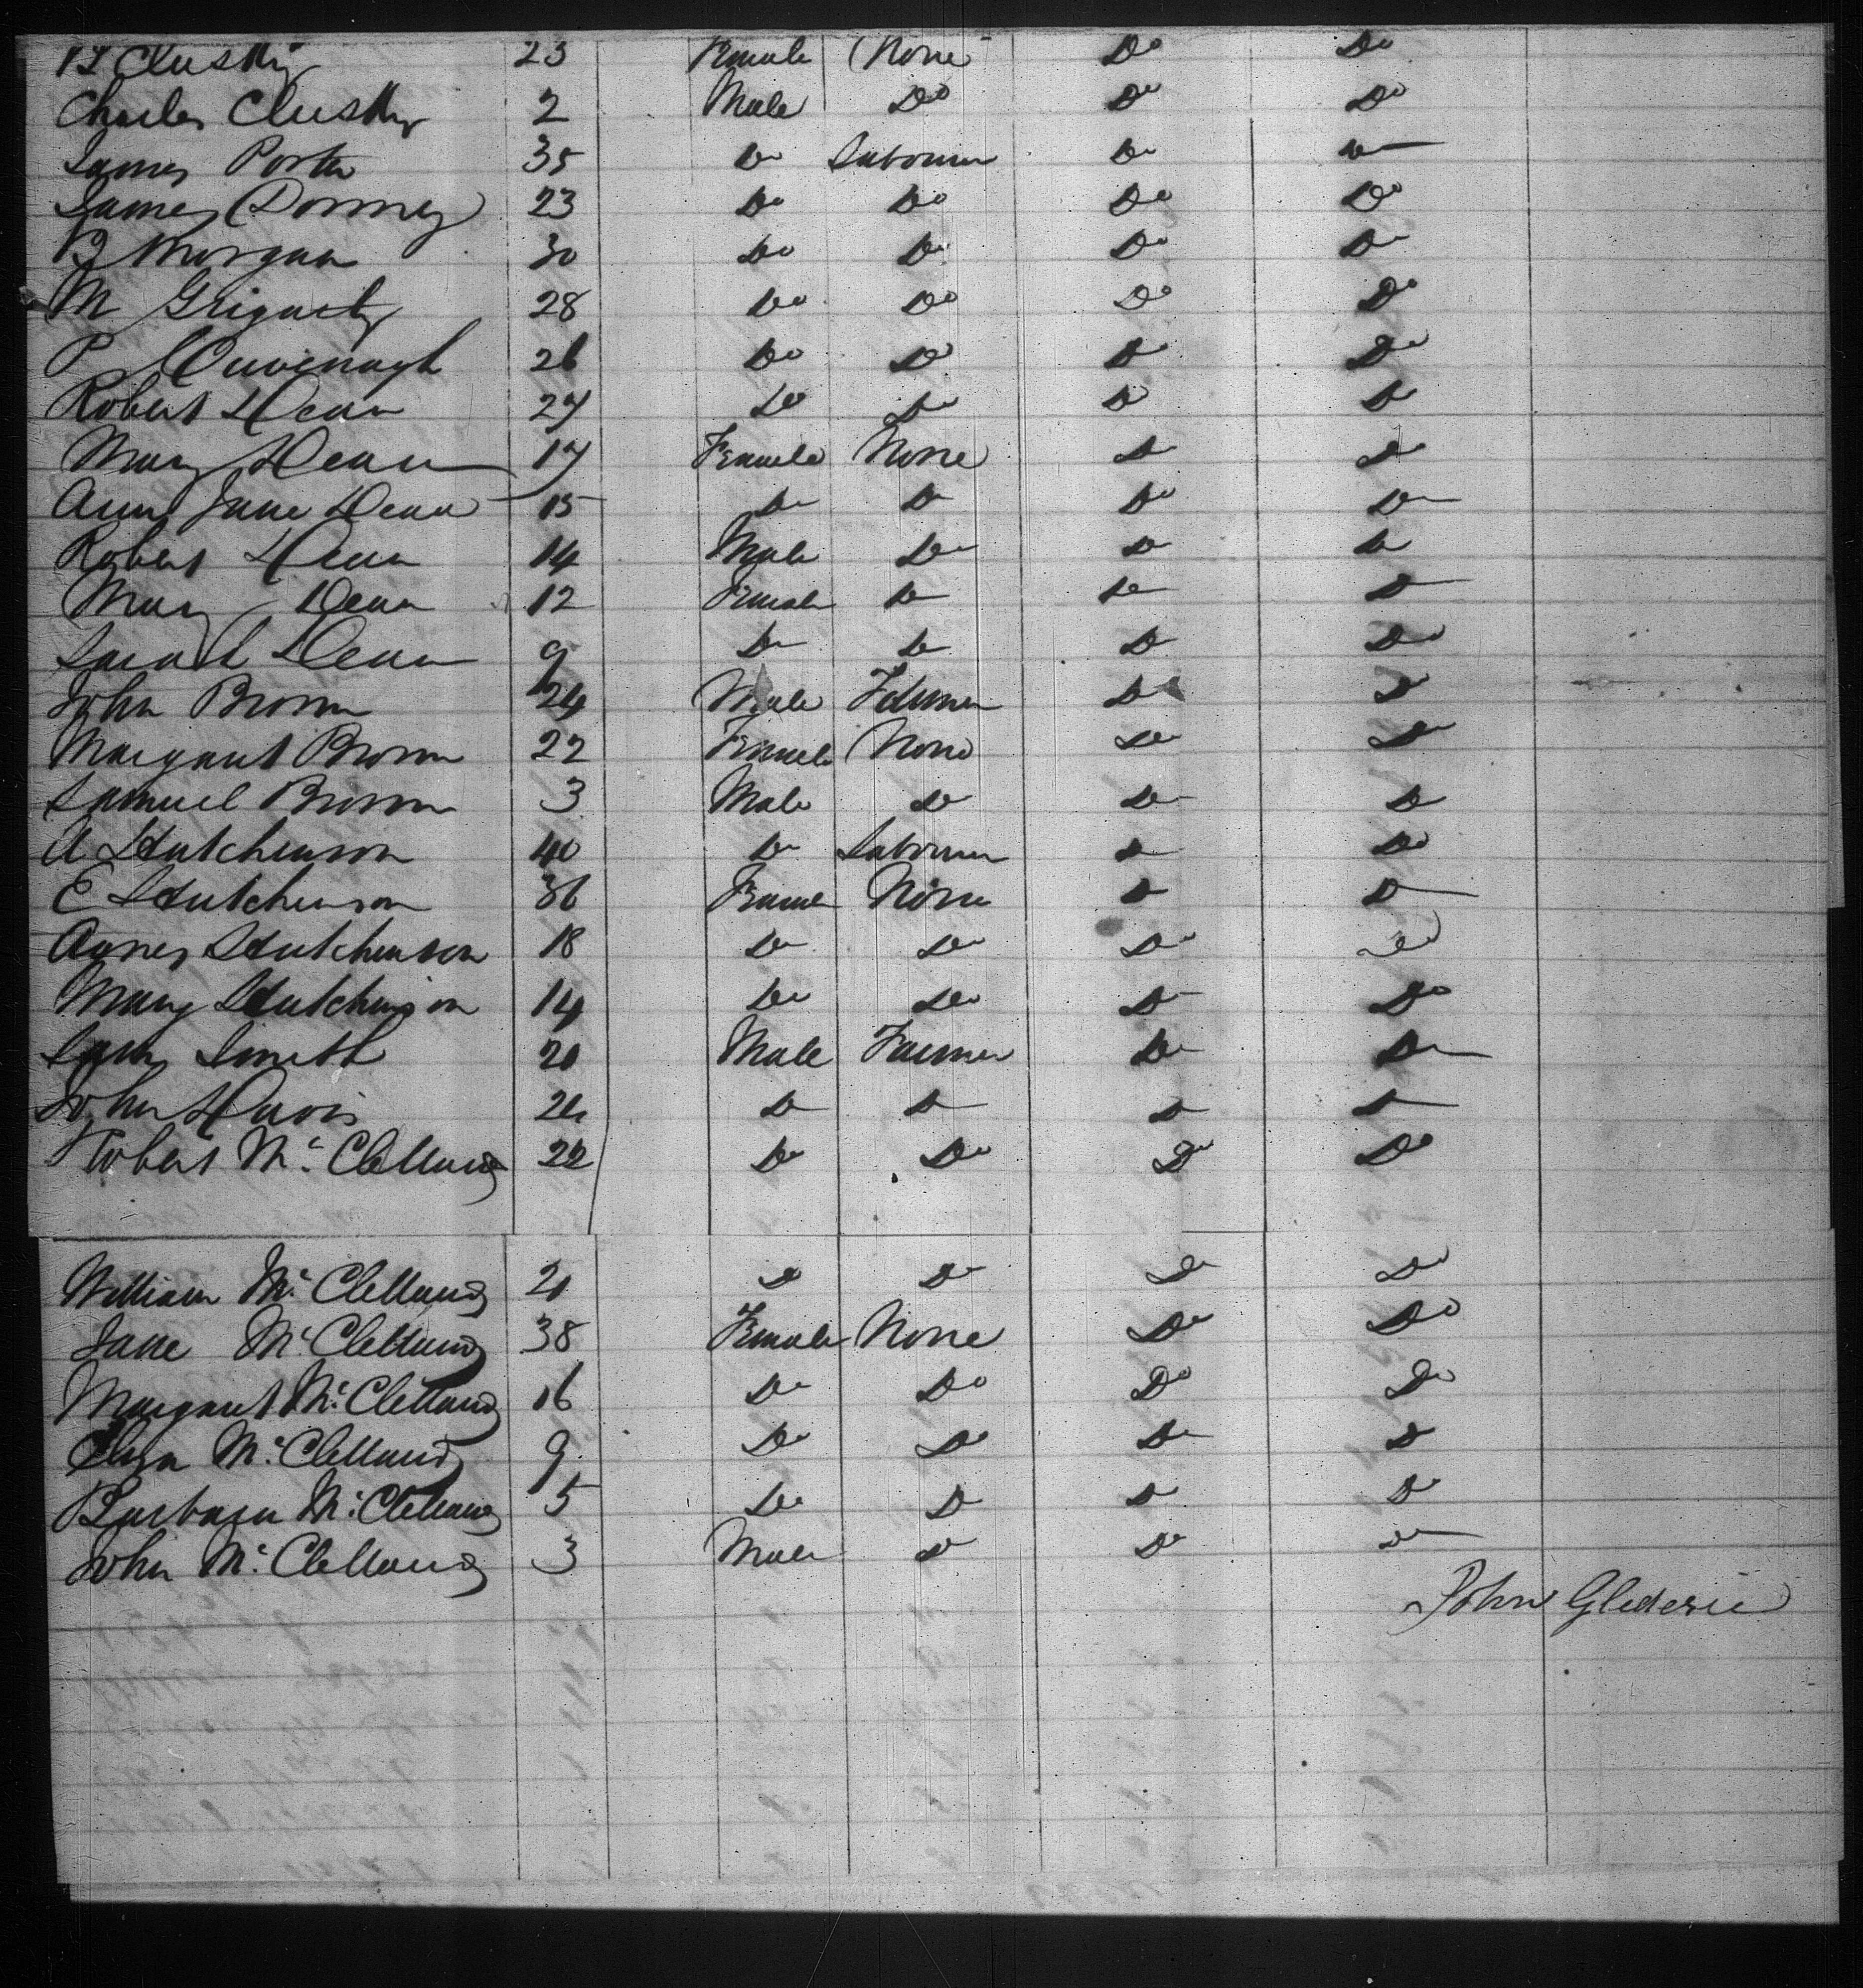 Clusky 23 Female None Do Do
Charles Clusky 2 Male Do Do Do
James Porter 35 Do Labourer Do Do
James 23 Do Do Do Do
B Morgan 30 Do Do Do Do
M 28 Do Do Do Do
P Cavenagh 26 Do Do Do Do
Robert Dean 27 Do Do Do Do
Mary Dean 17 Female None Do Do
Ann Jane Dean 15 Do Do Do Do
Robert Dean 14 Male Do Do Do
Mary Dean 12 Female Do Do Do
Sarah Dean 9 Do Do Do Do
John Brown 24 Male Farmer Do Do
Margaret Brown 22 Female None Do Do
Samuel Brown 3 Male Do Do Do
A Hutchenson 40 Do Labourer Do Do
E Hutchenson 36 Female None Do Do
Agnes Hutchenson 18 Do Do Do Do
Mary Hutchinson 14 Do Do Do Do
Smith 20 Male Farmer Do Do
John Davis Do Do Do Do
Robert McClelland 22 Do Do Do Do
William McClelland 20 Do Do Do Do
Jane McClelland 38 Female None Do Do
Margaret McClelland 16 Do Do Do Do
Eliza McClelland 9 Do Do Do Do
Barbara McClelland 5 Do Do Do Do
John McClelland 3 Male Do Do Do
John